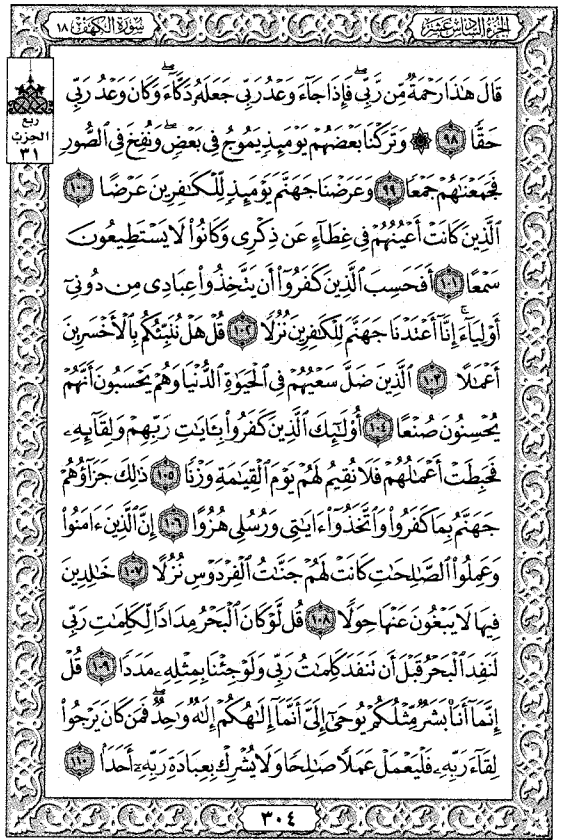 سُورَةُ الكَهْفِ ١٨
الجُزْءُ السَّادِسَ عَشَرَ
ربع
الحزب
٣١
قَالَ هَٰذَا رَحْمَةٌ مِّن رَّبِّي ۖ فَإِذَا جَآءَ وَعْدُ رَبِّي جَعَلَهُۥ دَكَّآءَ ۖ وَكَانَ وَعْدُ رَبِّي
حَقًّا ٩٨ ۞ وَتَرَكْنَا بَعْضَهُمْ يَوْمَئِذٍ يَمُوجُ فِي بَعْضٍ ۖ وَنُفِخَ فِي ٱلصُّورِ
فَجَمَعْنَٰهُمْ جَمْعًا ٩٩ وَعَرَضْنَا جَهَنَّمَ يَوْمَئِذٍ لِّلْكَٰفِرِينَ عَرْضًا ١٠٠
ٱلَّذِينَ كَانَتْ أَعْيُنُهُمْ فِي غِطَآءٍ عَن ذِكْرِي وَكَانُوا۟ لَا يَسْتَطِيعُونَ
سَمْعًا ١٠١ أَفَحَسِبَ ٱلَّذِينَ كَفَرُوٓا۟ أَن يَتَّخِذُوا۟ عِبَادِي مِن دُونِيٓ
أَوْلِيَآءَ ۚ إِنَّآ أَعْتَدْنَا جَهَنَّمَ لِلْكَٰفِرِينَ نُزُلًا ١٠٢ قُلْ هَلْ نُنَبِّئُكُم بِٱلْأَخْسَرِينَ
أَعْمَٰلًا ١٠٣ ٱلَّذِينَ ضَلَّ سَعْيُهُمْ فِي ٱلْحَيَوٰةِ ٱلدُّنْيَا وَهُمْ يَحْسَبُونَ أَنَّهُمْ
يُحْسِنُونَ صُنْعًا ١٠٤ أُو۟لَٰٓئِكَ ٱلَّذِينَ كَفَرُوا۟ بِـَٔايَٰتِ رَبِّهِمْ وَلِقَآئِهِۦ
فَحَبِطَتْ أَعْمَٰلُهُمْ فَلَا نُقِيمُ لَهُمْ يَوْمَ ٱلْقِيَٰمَةِ وَزْنًا ١٠٥ ذَٰلِكَ جَزَآؤُهُمْ
جَهَنَّمُ بِمَا كَفَرُوا۟ وَٱتَّخَذُوٓا۟ ءَايَٰتِي وَرُسُلِي هُزُوًا ١٠٦ إِنَّ ٱلَّذِينَ ءَامَنُوا۟
وَعَمِلُوا۟ ٱلصَّٰلِحَٰتِ كَانَتْ لَهُمْ جَنَّٰتُ ٱلْفِرْدَوْسِ نُزُلًا ١٠٧ خَٰلِدِينَ
فِيهَا لَا يَبْغُونَ عَنْهَا حِوَلًا ١٠٨ قُل لَّوْ كَانَ ٱلْبَحْرُ مِدَادًا لِّكَلِمَٰتِ رَبِّي
لَنَفِدَ ٱلْبَحْرُ قَبْلَ أَن تَنفَدَ كَلِمَٰتُ رَبِّي وَلَوْ جِئْنَا بِمِثْلِهِۦ مَدَدًا ١٠٩ قُلْ
إِنَّمَآ أَنَا۠ بَشَرٌ مِّثْلُكُمْ يُوحَىٰٓ إِلَيَّ أَنَّمَآ إِلَٰهُكُمْ إِلَٰهٌ وَٰحِدٌ ۖ فَمَن كَانَ يَرْجُوا۟
لِقَآءَ رَبِّهِۦ فَلْيَعْمَلْ عَمَلًا صَٰلِحًا وَلَا يُشْرِكْ بِعِبَادَةِ رَبِّهِۦٓ أَحَدًا ١١٠
٣٠٤